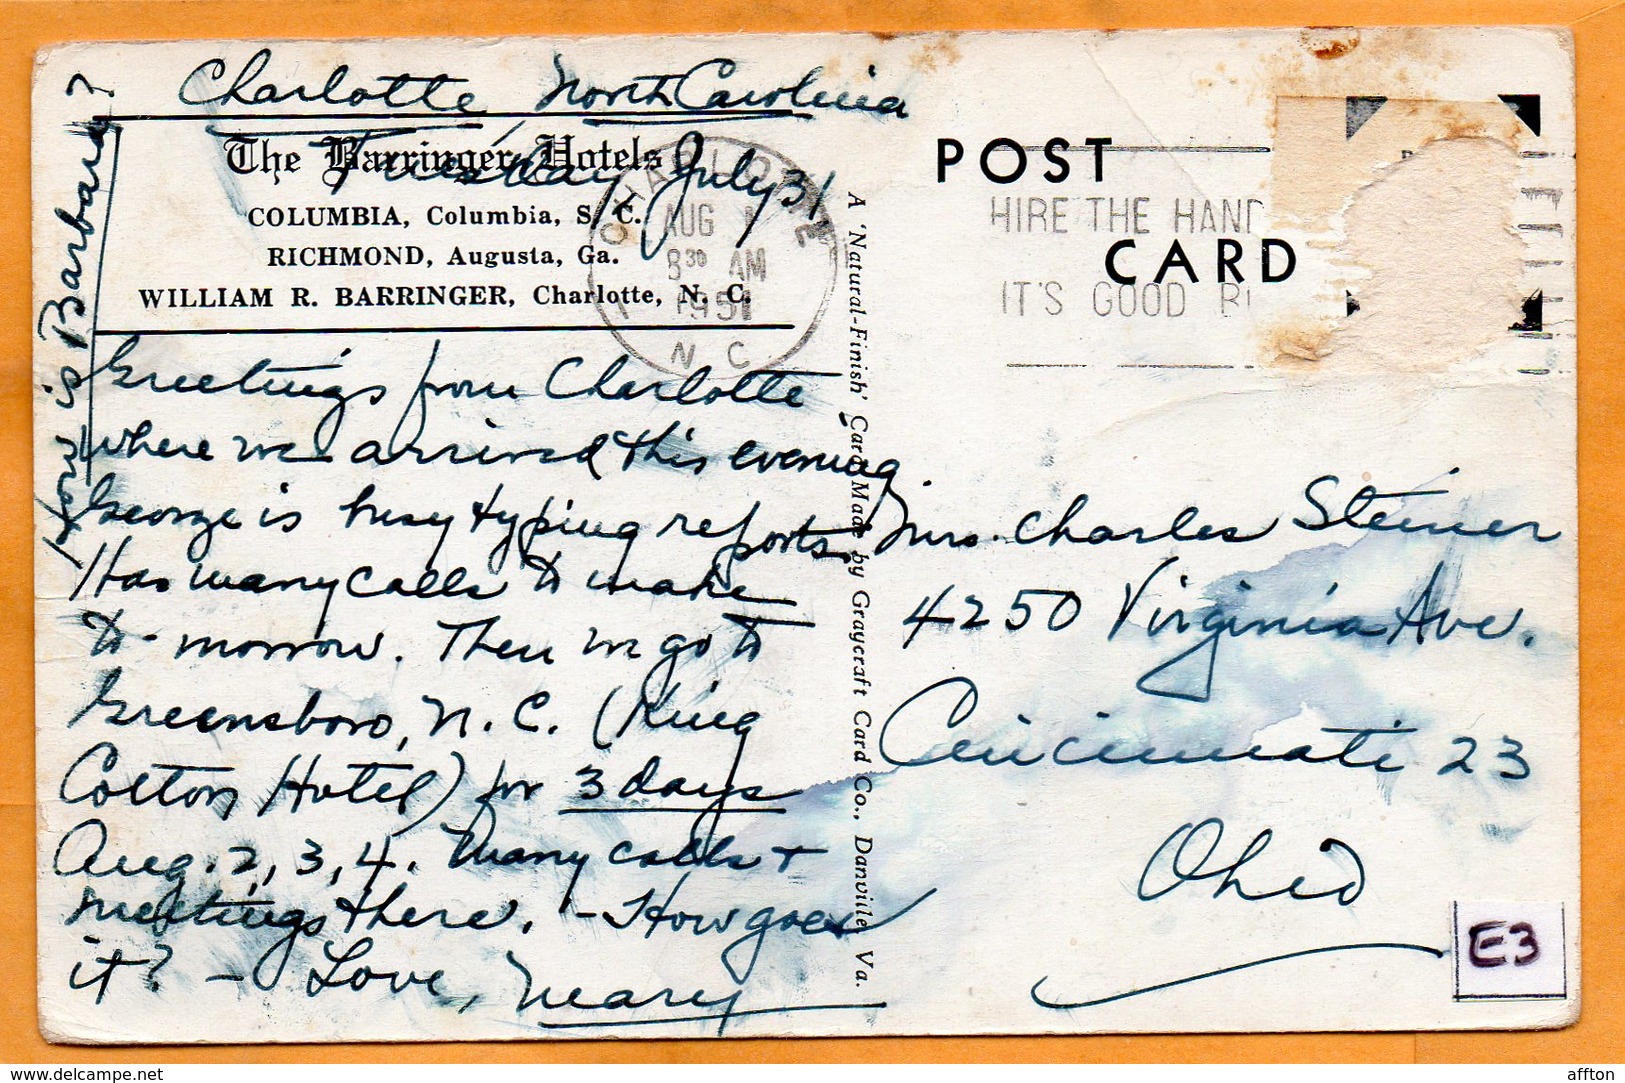 Charlotte, North Carolina
The Barringer Hotels
Tuesday July 31,
COLUMBIA, Columbia, S. C.
RICHMOND, Augusta, Ga.
WILLIAM R. BARRINGER, Charlotte, N. C.
How is Barbara?
Greetings from Charlotte
where we arrived this evening
George is busy typing reports.
Has many calls to make
to-morrow. Then we go to
Greensboro, N.C. (King
Cotton Hotel) for 3 days
Aug. 2, 3, 4. Many calls +
meetings there. - How goes
it? - Love, Mary
CHARLOTTE
AUG
8 30 AM
1951
N C
A 'Natural-Finish' Card Made by Graycraft Card Co., Danville, Va.
POST CARD
HIRE THE HAND
IT'S GOOD BU
Mrs. Charles Steiner
4250 Virginia Ave.
Cincinnati 23
Ohio
E3
delcampe.net
affton